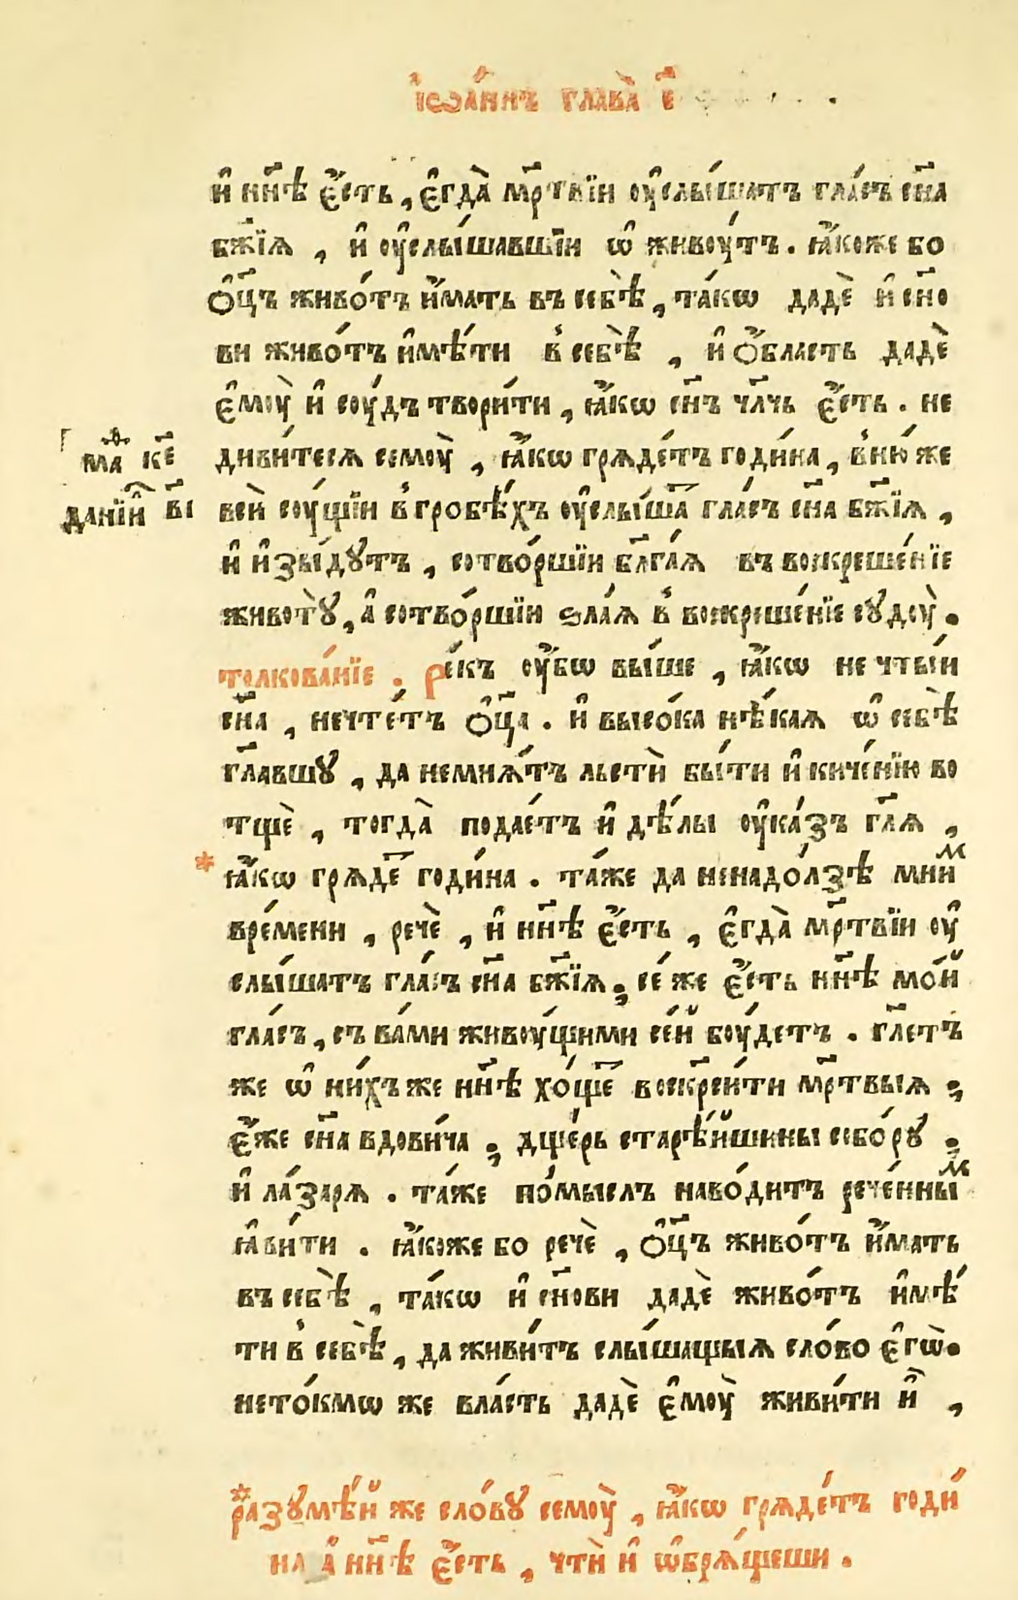 і҆ѡа́ннъ глава̀ є҃
и҆ нн҃ѣ є҆́сть, є҆гда̀ мр҃твїи ᲂу҆слы́шатъ гла́съ сн҃а
бж҃їѧ, и҆ ᲂу҆слы́шавшїи ѡ҆живоу́тъ. ꙗ҆́коже бо
ѻ҆ц҃ъ живо́тъ и҆́мать въ себѣ̀, та́кѡ дадѐ и҆ сн҃о
ви живо́тъ и҆мѣ́ти в̾ себѣ̀, и҆ ѻ҆́бласть дадѐ
є҆моу̀ и҆ соу́дъ твори́ти, ꙗ҆́кѡ сн҃ъ чл҃чь є҆́сть. не
диви́тесѧ семоу̀, ꙗ҆́кѡ грѧде́тъ годи́на, в̾ню́ же
маⷴ҇ к҃є
данїи҆л в҃і
вси̑ соу́щїи в̾ гробѣ́хъ ᲂу҆слы́шаⷮ гла́съ сн҃а бж҃їѧ,
и҆ и҆зы́дутъ, сотво́ршїи бл҃га́ѧ въ воскреше́нїе
животꙋ̀, а҆ сотво́ршїи ѕла́ѧ в̾ воскреше́нїе судоу̀.
толкова́нїе. Ре́къ ᲂу҆́бѡ вы́ше, ꙗ҆́кѡ не чты́и
сн҃а, нечте́тъ ѻ҆ц҃а. и҆ высо́ка нѣ́каѧ ѡ҆ себѣ̀
гл҃авшꙋ, да немнѧ́тъ льстѝ бы́ти и҆ киче́нїю во
тщѐ, тогда̀ подае́тъ и҆ дѣ́лы ᲂу҆ка́зъ гл҃ѧ,
* ꙗ҆́кѡ грѧде́ⷮ годи́на. та́же да ненадо́лзѣ мниⷨ
вре́мени, речѐ, и҆ нн҃ѣ є҆́сть, є҆гда̀ мр҃твїи ᲂу҆
слы́шатъ гла́съ сн҃а бж҃їѧ; се́ же є҆́сть нн҃ѣ мо́й
гла́съ, съ ва́ми живоу́щими се́й боу́детъ. гл҃етъ
же ѡ҆ ни́хъже нн҃ѣ хо́щеⷮ воскр҃си́ти мр҃твыѧ;
є҆́же сн҃а вдови́ча; дще́рь старѣ́йшины собо́рꙋ;
и҆ ла́зарѧ. та́же по́мыслъ наво́дитъ рече́нныⷨ
ꙗ҆ви́ти. ꙗ҆́коже бо речѐ, ѻ҆ц҃ъ живо́тъ и҆́мать
въ себѣ̀, та́кѡ и҆ сн҃ови дадѐ живо́тъ и҆мѣ́
ти в̾ себѣ̀, да живи́тъ слы́шащыѧ сло́во є҆гѡ̀.
нето́кмѡ же вла́сть дадѐ є҆моу̀ живи́ти и҆̀,
*разꙋмѣ́й же сло́вꙋ семоу̀, ꙗ҆́кѡ грѧде́тъ годи́
на а҆ нн҃ѣ є҆́сть, чтѝ и҆ ѡ҆брѧ́щеши.